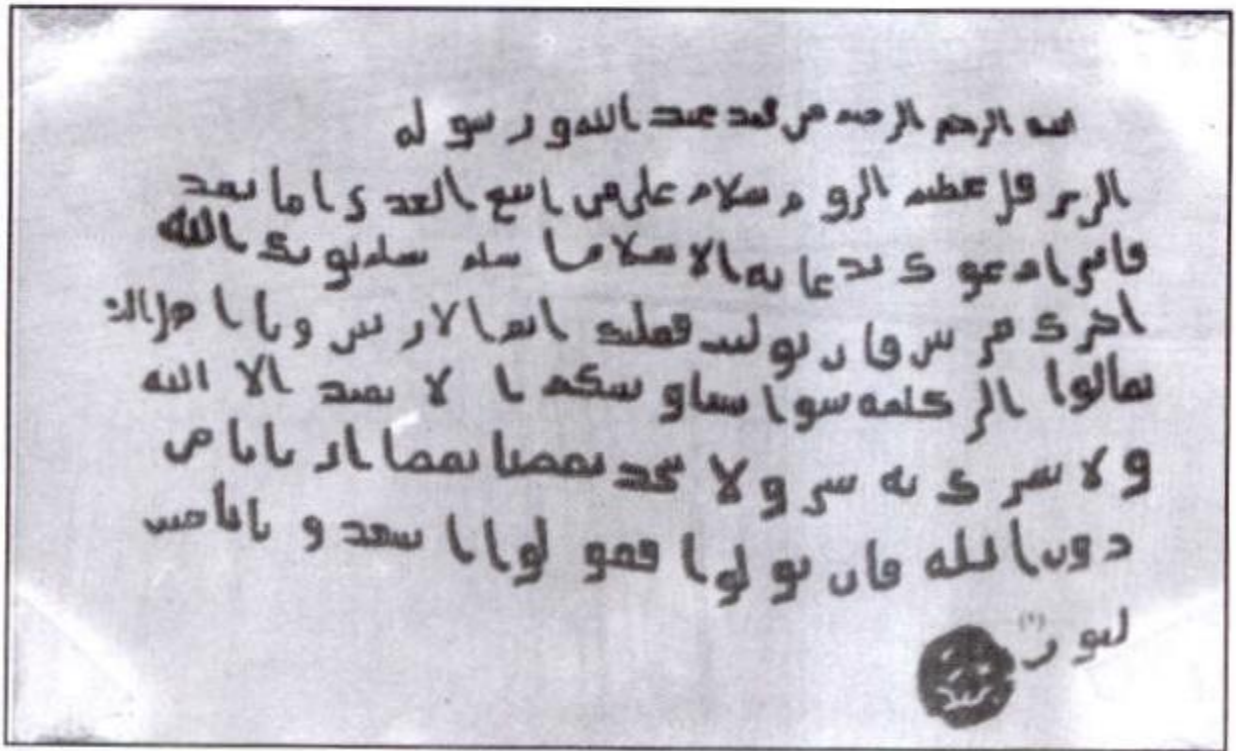 بسم الله الرحمن الرحيم من محمد عبد الله ورسوله
الى هرقل عظيم الروم سلام على من اتبع الهدى اما بعد
فانى ادعوك بدعاية الاسلام اسلم تسلم يوتك الله
اجرك مرتين فان توليت فعليك اثم الاريسين ويا اهل الكتاب
تعالوا الى كلمة سوا بيننا وبينكم الا نعبد الا الله
ولا نشرك به شيا ولا يتخذ بعضنا بعضا اربابا من
دون الله فان تولوا فقولوا اشهدوا بانا مسلمون
(١)